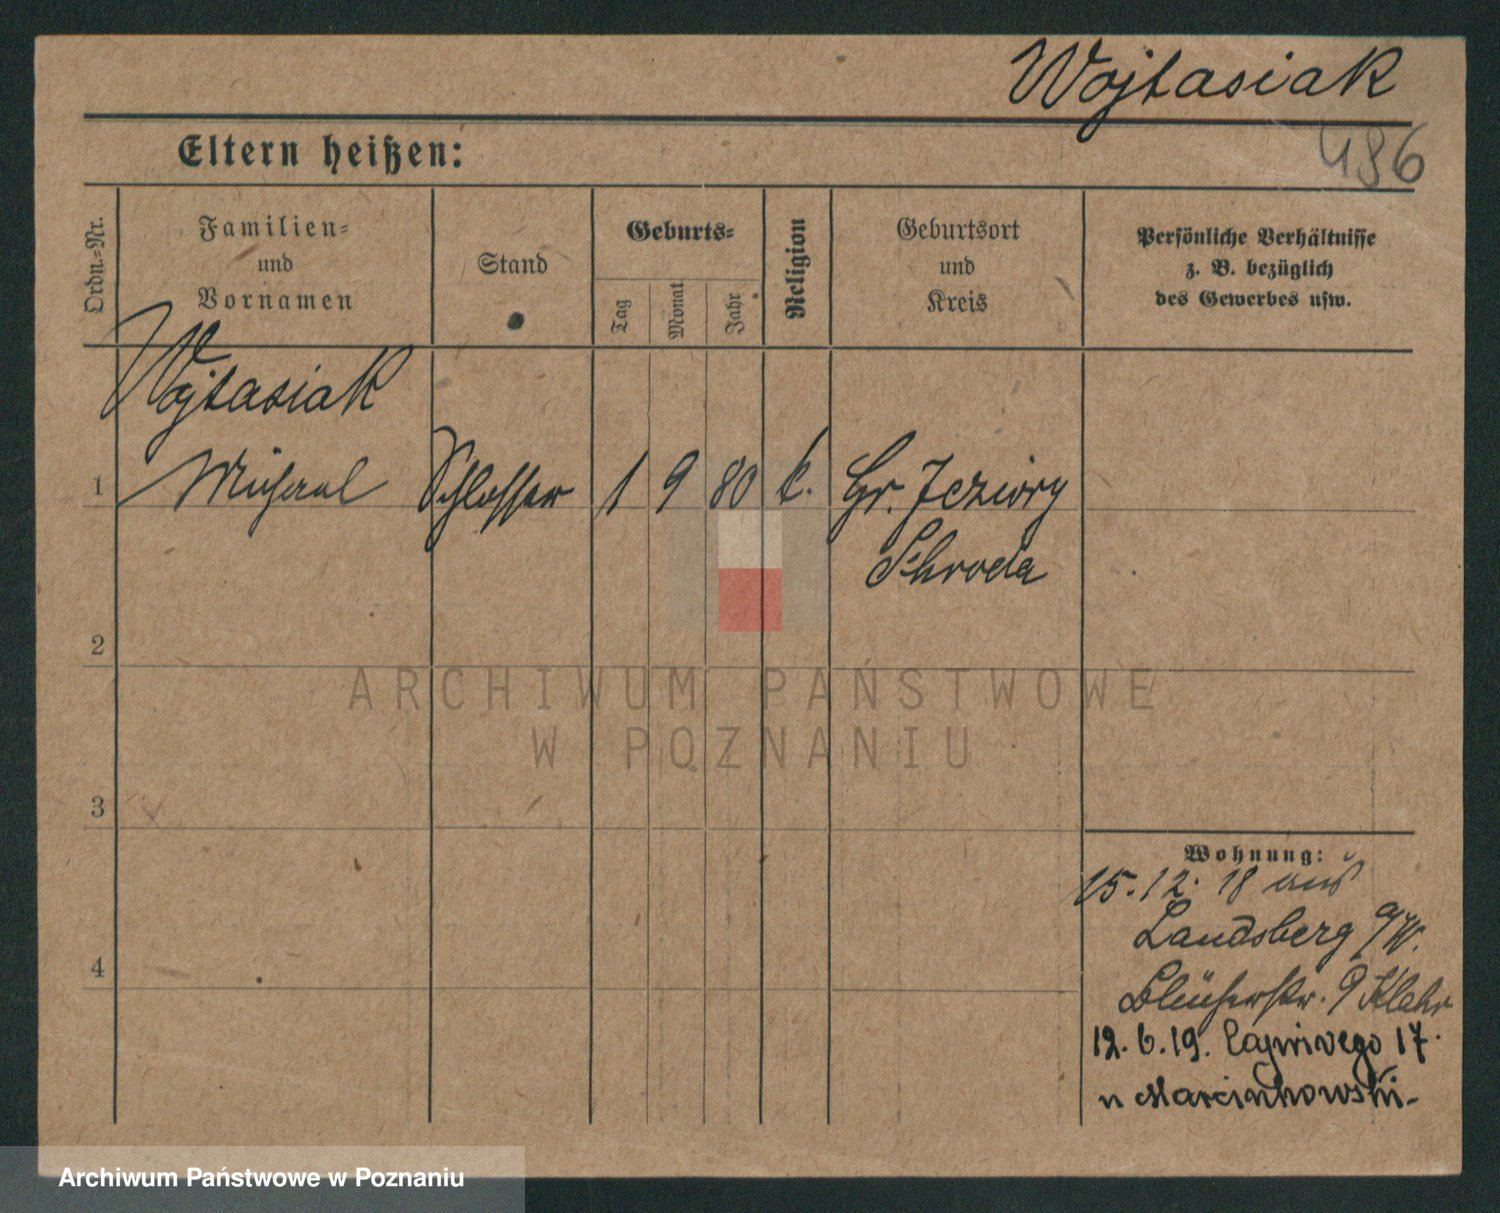 Wojtasiak
486
Eltern heißen:
Ordn.-Nr.
Familien-
und
Vornamen
Stand
Geburts-
Tag
Monat
Jahr
Religion
Geburtsort
und
Kreis
Persönliche Verhältnisse
z. B. bezüglich
des Gewerbes usw.
Wojtasiak
1 Michael Schlosser 1 9 80 k. Gr. Jeziory
Schroda
2
3
4
Wohnung:
15.12.18 aus
Landsberg a/W.
Blücherstr. 9 Klahr
12.6.19. 17
u Marcinkowski
ARCHIWUM PAŃSTWOWE
W POZNANIU
Archiwum Państwowe w Poznaniu